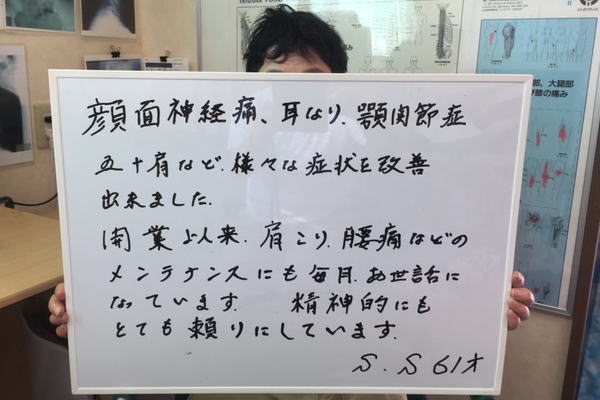 TRIGGER POINT
部、大腿部
膝の痛み
顔面神経痛、耳なり、顎関節症
五十肩など、様々な症状を改善
出来ました。
開業以来、肩こり、腰痛などの
メンテナンスにも毎月、お世話に
なっています。 精神的にも
とても頼りにしています。
S. S 61才